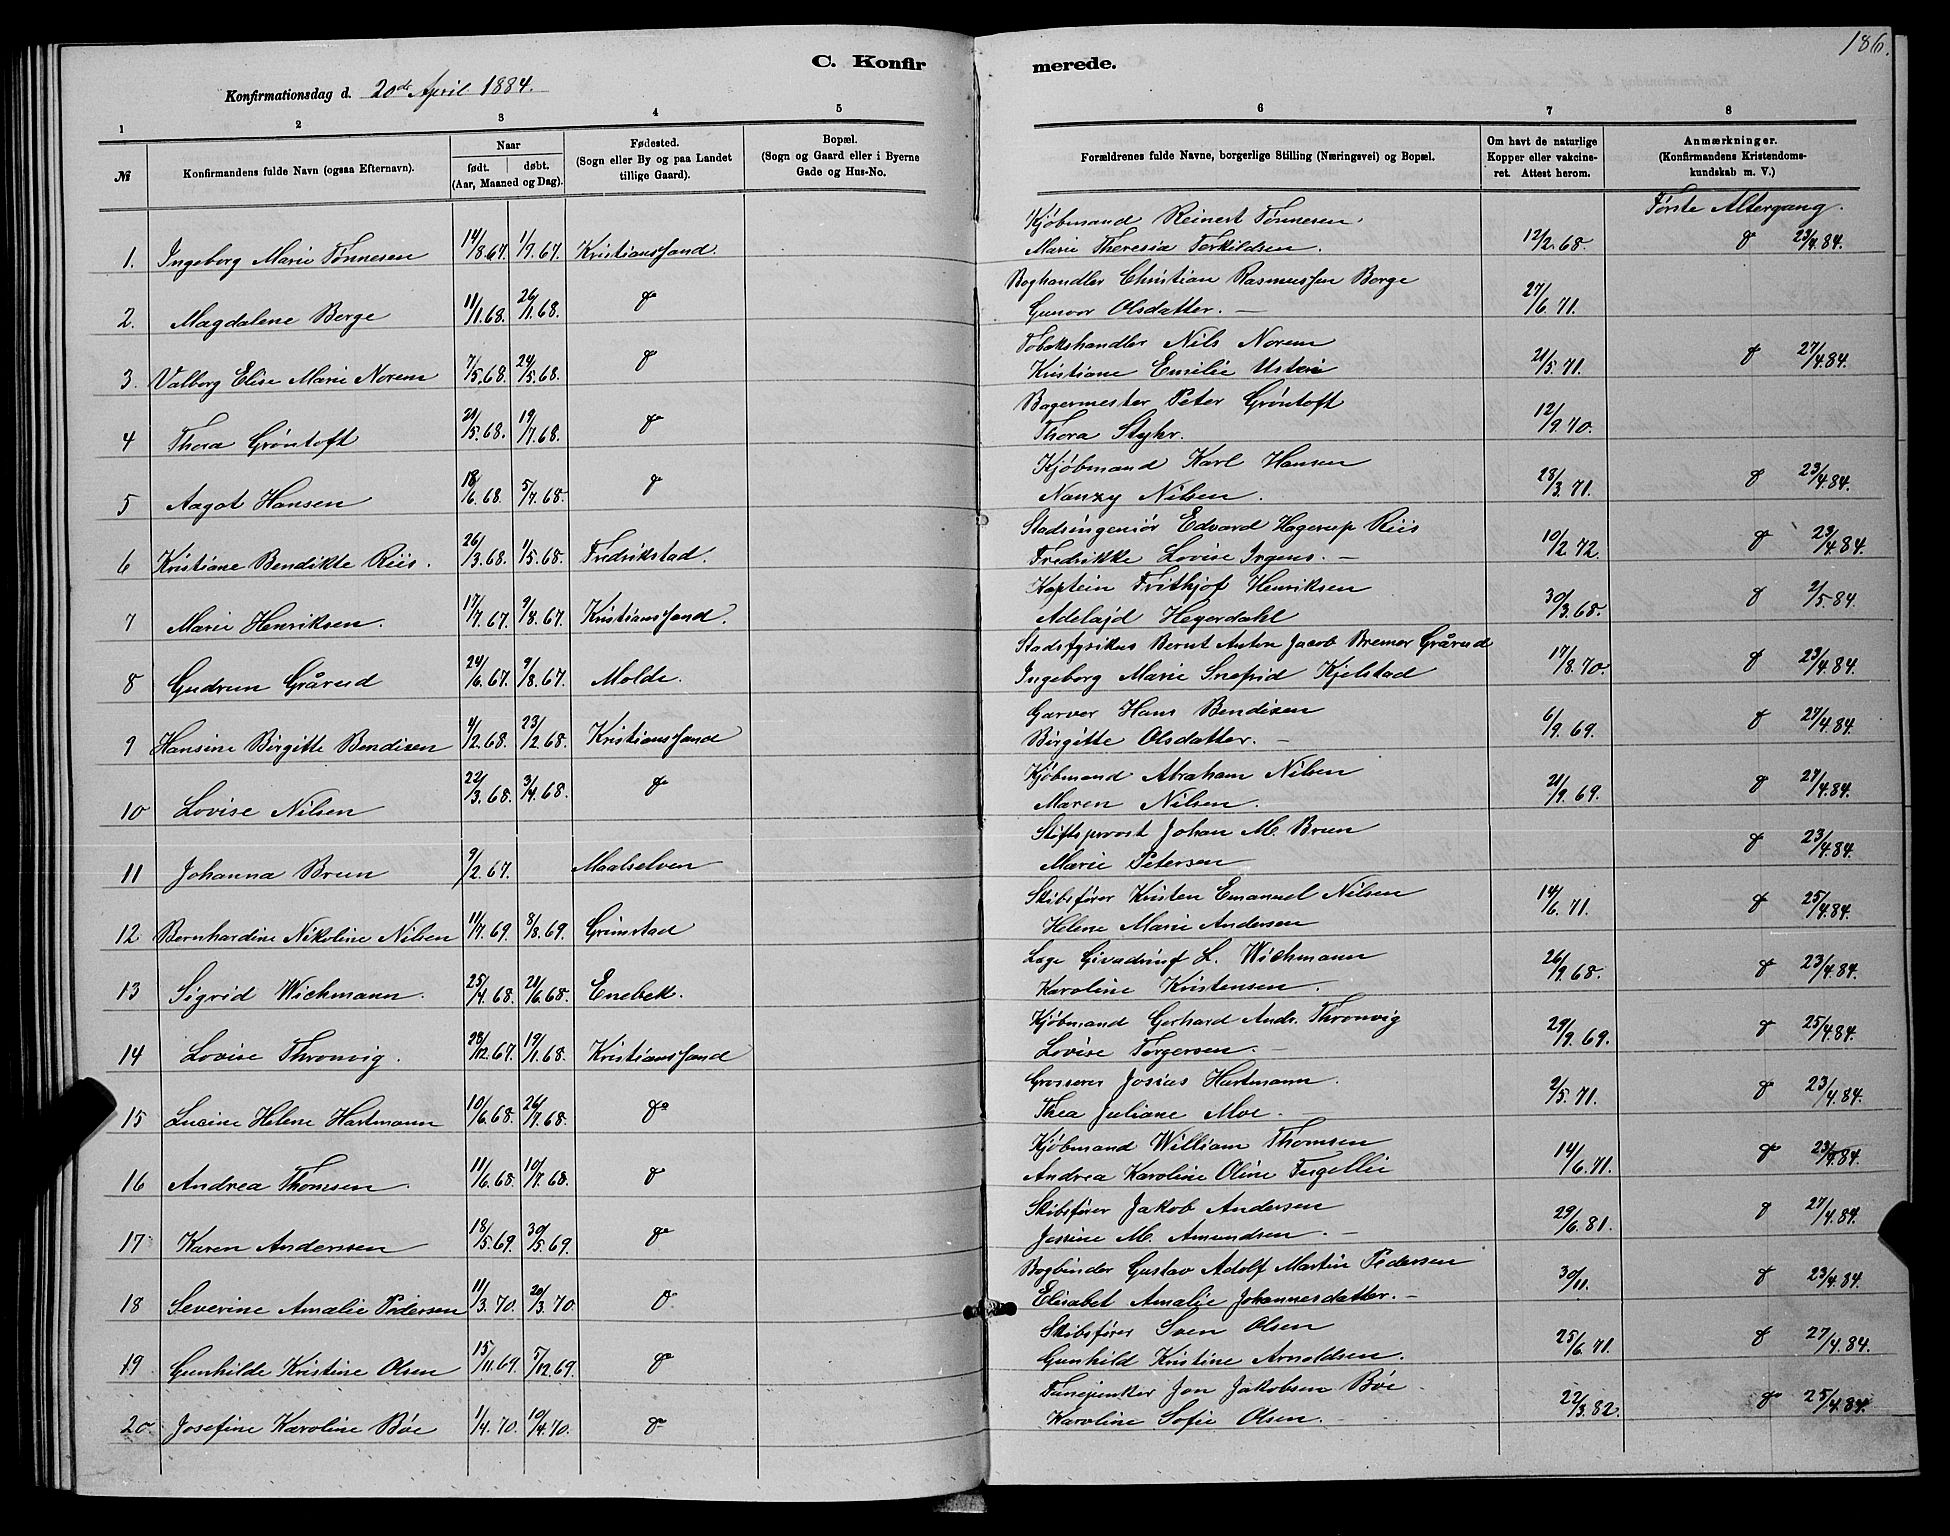 186.
C. Konfirmerede.
Konfirmationsdag d. 20de April 1884.
1 2 3 4 5 6 7 8
№ | Konfirmandens fulde Navn (ogsaa Efternavn). | Naar født. døbt. (Aar, Maaned og Dag). | Fødested. (Sogn eller By og paa Landet tillige Gaard). | Bopæl. (Sogn og Gaard eller i Byerne Gade og Hus-No. | Forældrenes fulde Navne, borgerlige Stilling (Næringsvei) og Bopæl. | Om havt de naturlige Kopper eller vakcineret. Attest herom. | Anmærkninger. (Konfirmandens Kristendomskundskab m. V.)
Første Altergang.
1. Ingeborg Marie Tønnesen 14/8.67. 1/9.67. Kristianssand. Kjøbmand Reinert Tønnesen. Marie Theresia Terkildsen. 12/2.68. do 23/4.84.
2. Magdalene Berge 11/1.68. 26/1.68. do Boghandler Christian Rasmussen Berge Gunvor Olsdatter. 27/6.71.
3. Valborg Elise Marie Norem 7/5.68. 24/5.68. do Tobakshandler Nils Norem Kristiane Emilie 21/5.71. do 27/4.84.
4 Thora Grøntoft 21/5.68. 19/7.68. do Bagermester Peter Grøntoft Thora Styhr. 12/9.70.
5 Aagot Hansen 18/6.68. 5/7.68. do Kjøbmand Karl Hansen Nanzy Nilsen. 28/3.71. do 23/4.84.
6 Kristiane Bendikte Riis. 26/3.68. 1/5.68. Fredrikstad. Stadsingeniør Edvard Hagerup Riis Fredrikke Lovise Irgens. 10/2.72. do 23/4.84.
7 Marie Henriksen. 17/7.67. 9/8.67. Kristianssand. Kaptein Frithjof Henriksen Adelajd Hegerdahl 30/3.68. do 2/5.84.
8 Gudrun Grårud 24/6.67. 9/8.67. Molde. Stadsfysikus Bernt Anton Jacob Bremer Grårud Ingeborg Marie Snefrid Kjelstad 17/8.70. do 23/4.84.
9 Hansine Birgitte Bendixen 4/2.68. 23/2.68. Kristianssand Garver Hans Bendixen Birgitte Olsdatter. 6/9.69. do 27/4.84.
10 Lovise Nilsen 22/3.68. 3/4.68. do Kjøbmand Abraham Nilsen Maren Nilsen. 21/9.69. do 27/4.84.
11 Johanna Brun 9/2.67. Maalselven Stiftsprovst Johan M. Brun Marie Petersen do 23/4.84.
12 Bernhardine Nikoline Nilsen 11/7.69. 8/8.69. Grimstad Skibsfører Kristen Emanuel Nilsen Helene Marie Andersen 14/6.71. do 25/4.84.
13 Sigrid Wichmann. 25/4.68. 21/6.68. Enebak. Læge L. Wichmann Karoline Kristensen. 26/9.68. do 23/4.84.
14 Lovise Thronvig. 28/12.67. 19/1.68. Kristianssand Kjøbmand Gerhard Andr. Thronvig Lovise Torgersen. 29/9.69. do 25/4.84.
15 Lucine Helene Hartmann 10/6.68. 26/7.68. do Grosserer Josias Hartmann. Thea Juliane Moe. 2/5.71. do 23/4.84.
16 Andrea Thomsen. 11/6.68. 10/7.68. do Kjøbmand William Thomsen Andrea Karoline Oline Fugellie 14/6.71. do 23/4.84.
17 Karen Anderssen 18/5.69. 30/5.69. do Skibsfører Jakob Andersen Jossine M. Amundsen. 29/6.81. do 27/4.84.
18 Severine Amalie Pedersen 11/3.70. 20/3.70. do Bogbinder Gustav Adolf Martin Pedersen Elisabet Amalie Johannesdatter. 30/11. do 23/4.84.
19 Gunhilde Kristine Olsen 15/11.69. 5/12.69. do Skibsfører Sven Olsen Gunhild Kristine Arnoldsen. 25/6.71. do 27/4.84.
20 Josefine Karoline Bøe 1/4.70. 10/4.70. do Fanejunker Jon Jakobsen Bøe Karoline Sofie Olsen. 22/3.82. do 25/4.84.